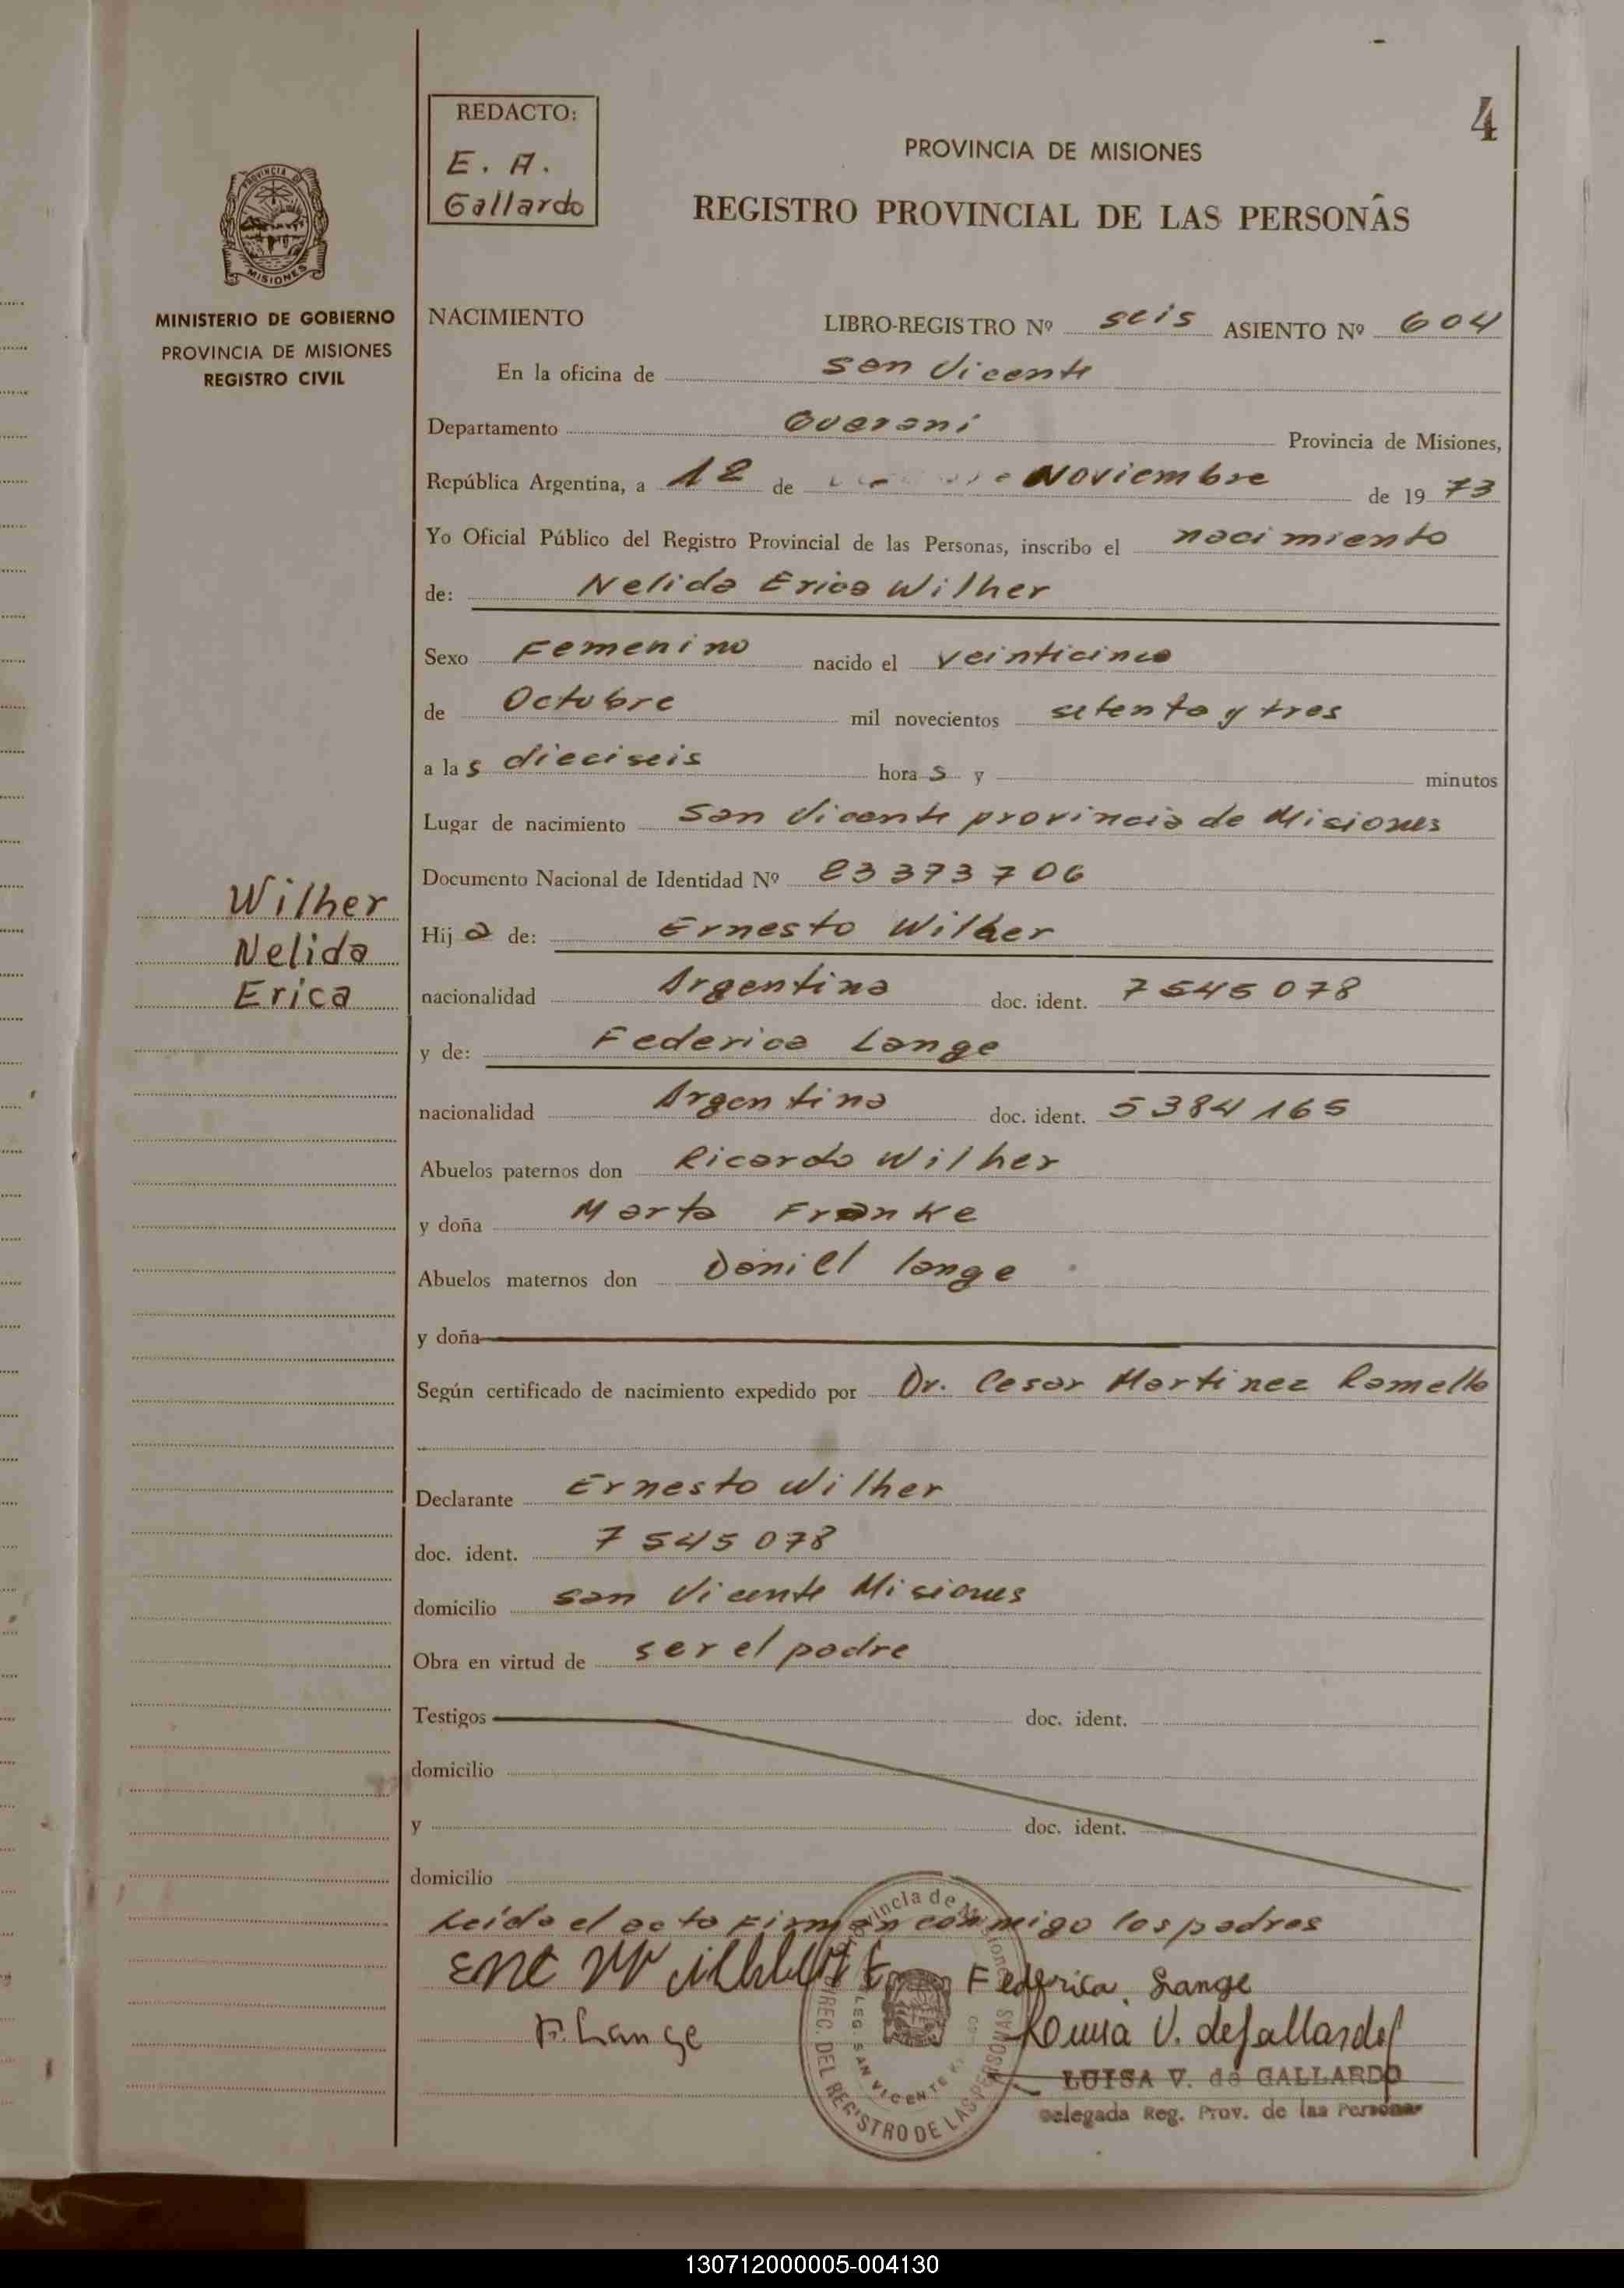 4
REDACTO:
E. A.
Gallardo
PROVINCIA DE MISIONES
REGISTRO PROVINCIAL DE LAS PERSONAS
PROVINCIA DE
MISIONES
MINISTERIO DE GOBIERNO
PROVINCIA DE MISIONES
REGISTRO CIVIL
NACIMIENTO LIBRO-REGISTRO Nº seis ASIENTO Nº 604
En la oficina de San Vicente
Departamento Guarani Provincia de Misiones,
República Argentina, a 12 de Noviembre de 1973
Yo Oficial Público del Registro Provincial de las Personas, inscribo el nacimiento
de: Nelida Erica Wilher
Sexo Femenino nacido el veinticinco
de Octubre mil novecientos setenta y tres
a las dieciseis horas y minutos
Lugar de nacimiento San Vicente provincia de Misiones
Documento Nacional de Identidad Nº 23373706
Wilher
Nelida
Erica
Hija de: Ernesto Wilher
nacionalidad Argentina doc. ident. 7545078
y de: Federica Lange
nacionalidad Argentina doc. ident. 5384165
Abuelos paternos don Ricardo Wilher
y doña Marta Franke
Abuelos maternos don Daniel lange
y doña
Según certificado de nacimiento expedido por Dr. Cesar Martinez Ramella
Declarante Ernesto Wilher
doc. ident. 7545078
domicilio San Vicente Misiones
Obra en virtud de ser el padre
Testigos doc. ident.
domicilio
y doc. ident.
domicilio
Leída el acta Firman conmigo los padres
Federica Lange
F. Lange
Luisa V. de Gallardo
LUISA V. de GALLARDO
Delegada Reg. Prov. de las Personas
Provincia de Misiones
DIREC. DEL REGISTRO DE LAS PERSONAS
DELEG. SAN VICENTE
130712000005-004130